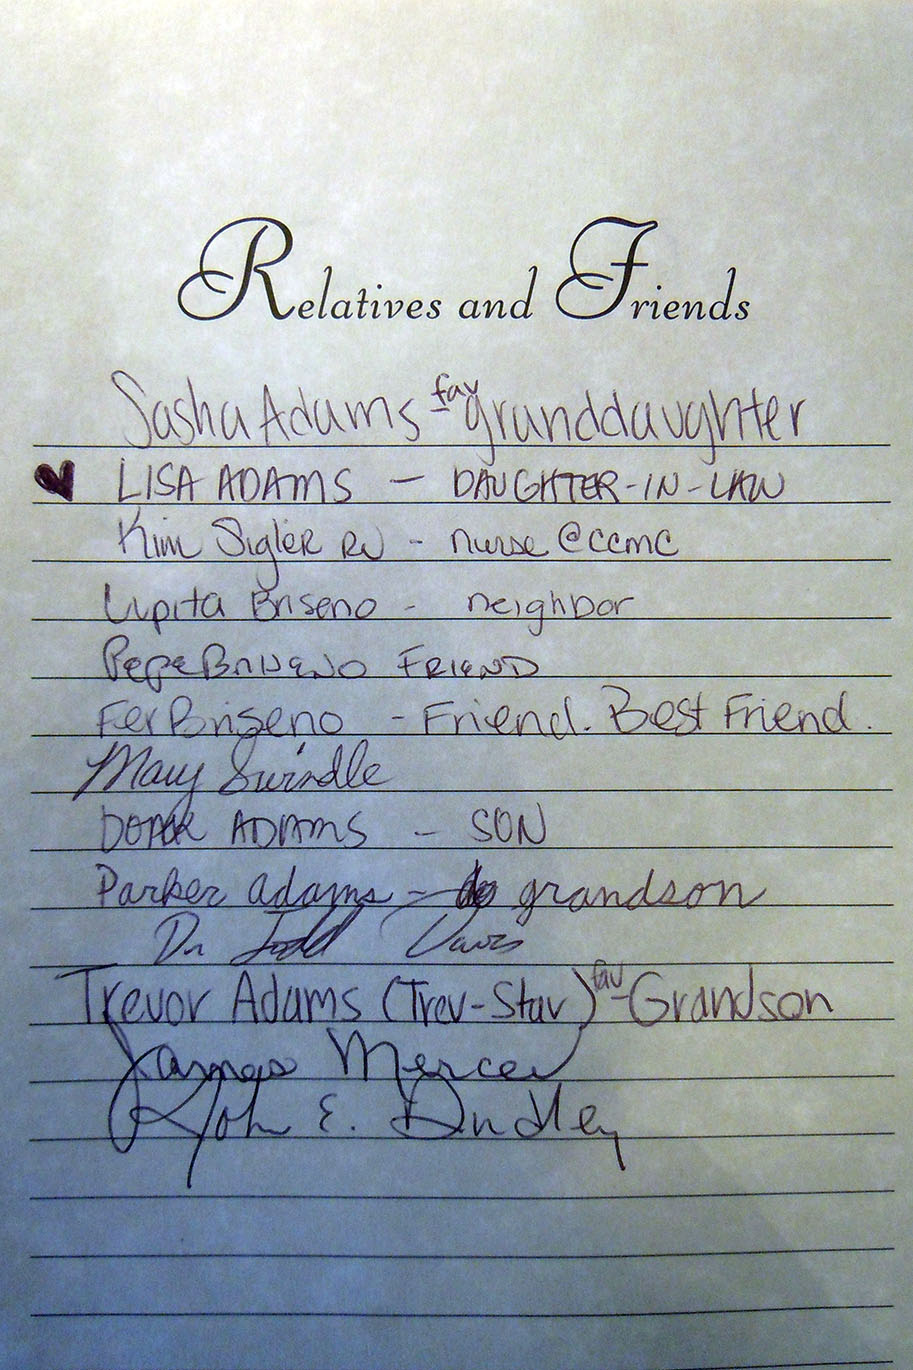 Relatives and Friends
Sasha Adams - fav granddaughter
LISA ADAMS - DAUGHTER-IN-LAW
Kim Sigler RN - nurse @ CCMC
Lupita Briseno - neighbor
Pepe Briseno FRIEND
Fer Briseno - Friend. Best Friend.
Mary Swindle
ADAMS - SON
Parker Adams - grandson
Dr Todd Davis
Trevor Adams (Trev-Star) fav - Grandson
James Mercer
John E.